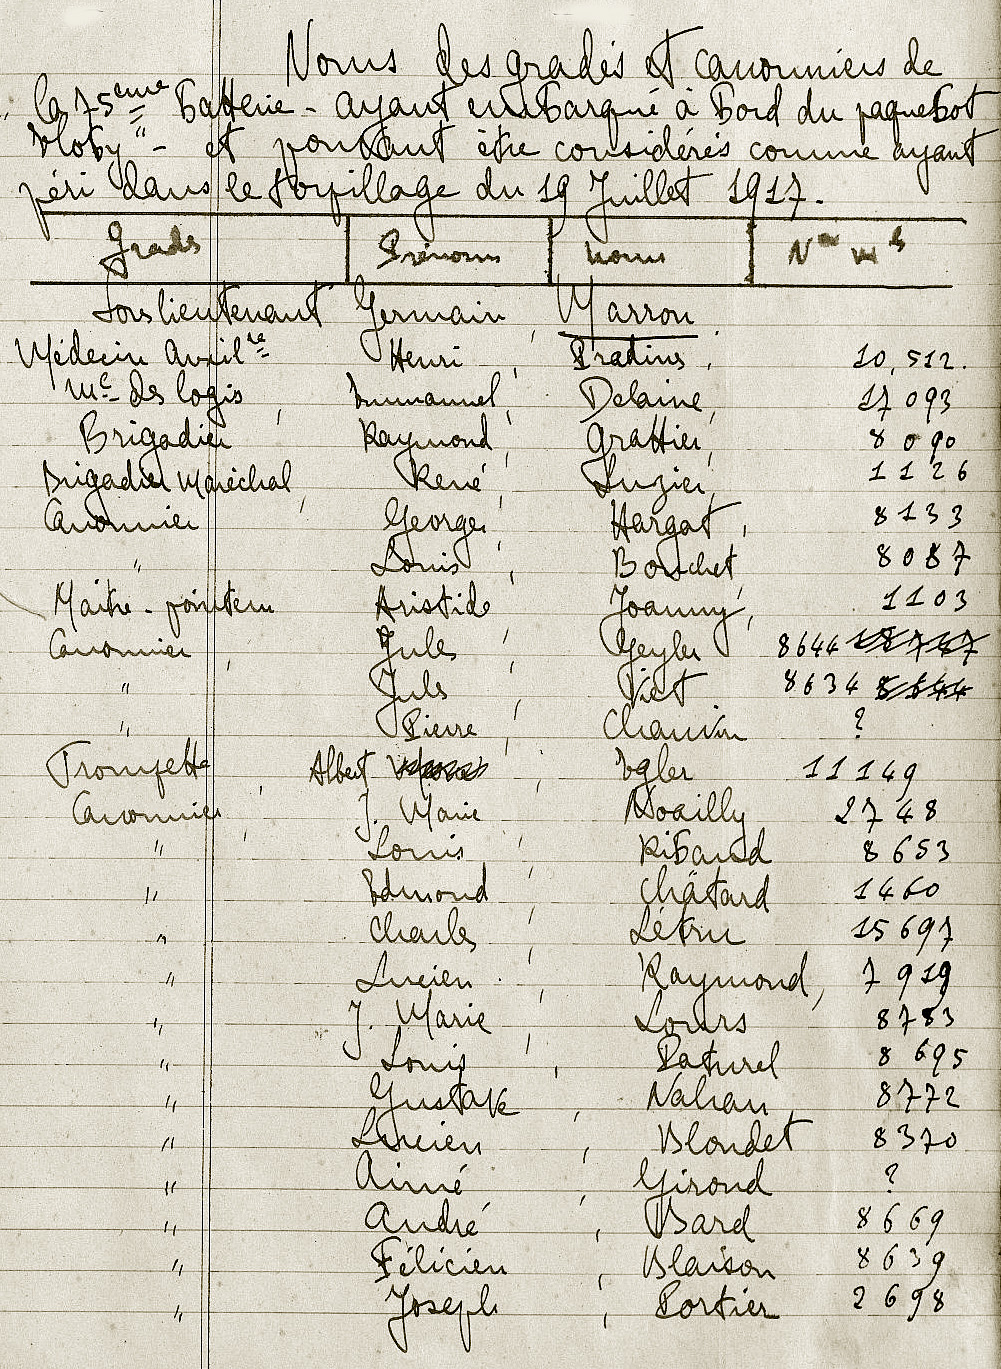 Noms des gradés et canonniers de
la 75eme Batterie - ayant embarqué à bord du paquebot
"Moby" - et pouvant être considérés comme ayant
péri dans le torpillage du 19 Juillet 1917.
Grads Prénoms Noms Nos mls
Sous lieutenant Germain, Marron.
Médecin Auxilre Henri, Pradins, 10,512.
Mc des logis, Emmanuel, Delaine, 17 093
Brigadier Raymond, Grattier, 8 090
Brigadier Maréchal, René, Luzier, 1126
Canonnier George, Hargat, 8133
" Louis, Bouchet 8087
Maitre-pointeur Aristide Joanny, 1103
Canonnier, Jules, Geyler 8644
" Jules, Viat 8634
" Pierre, Chauvin ?
Trompette, Albert, Igler 11149
Canonnier, J. Marie, Noailly 2748
" Louis, Ribaud 8653
" Edmond Châtard 1460
" Charles, Létru 15697
" Lucien, Raymond, 7919
" J. Marie, Lours 8783
" Louis, Paturel 8695
" Gustave, Nahan, 8772
" Lucien, Blondet 8370
" Aimé, Girond ?
" André, Bard 8669
" Félicien, Blaison 8639
" Joseph, Portier 2698